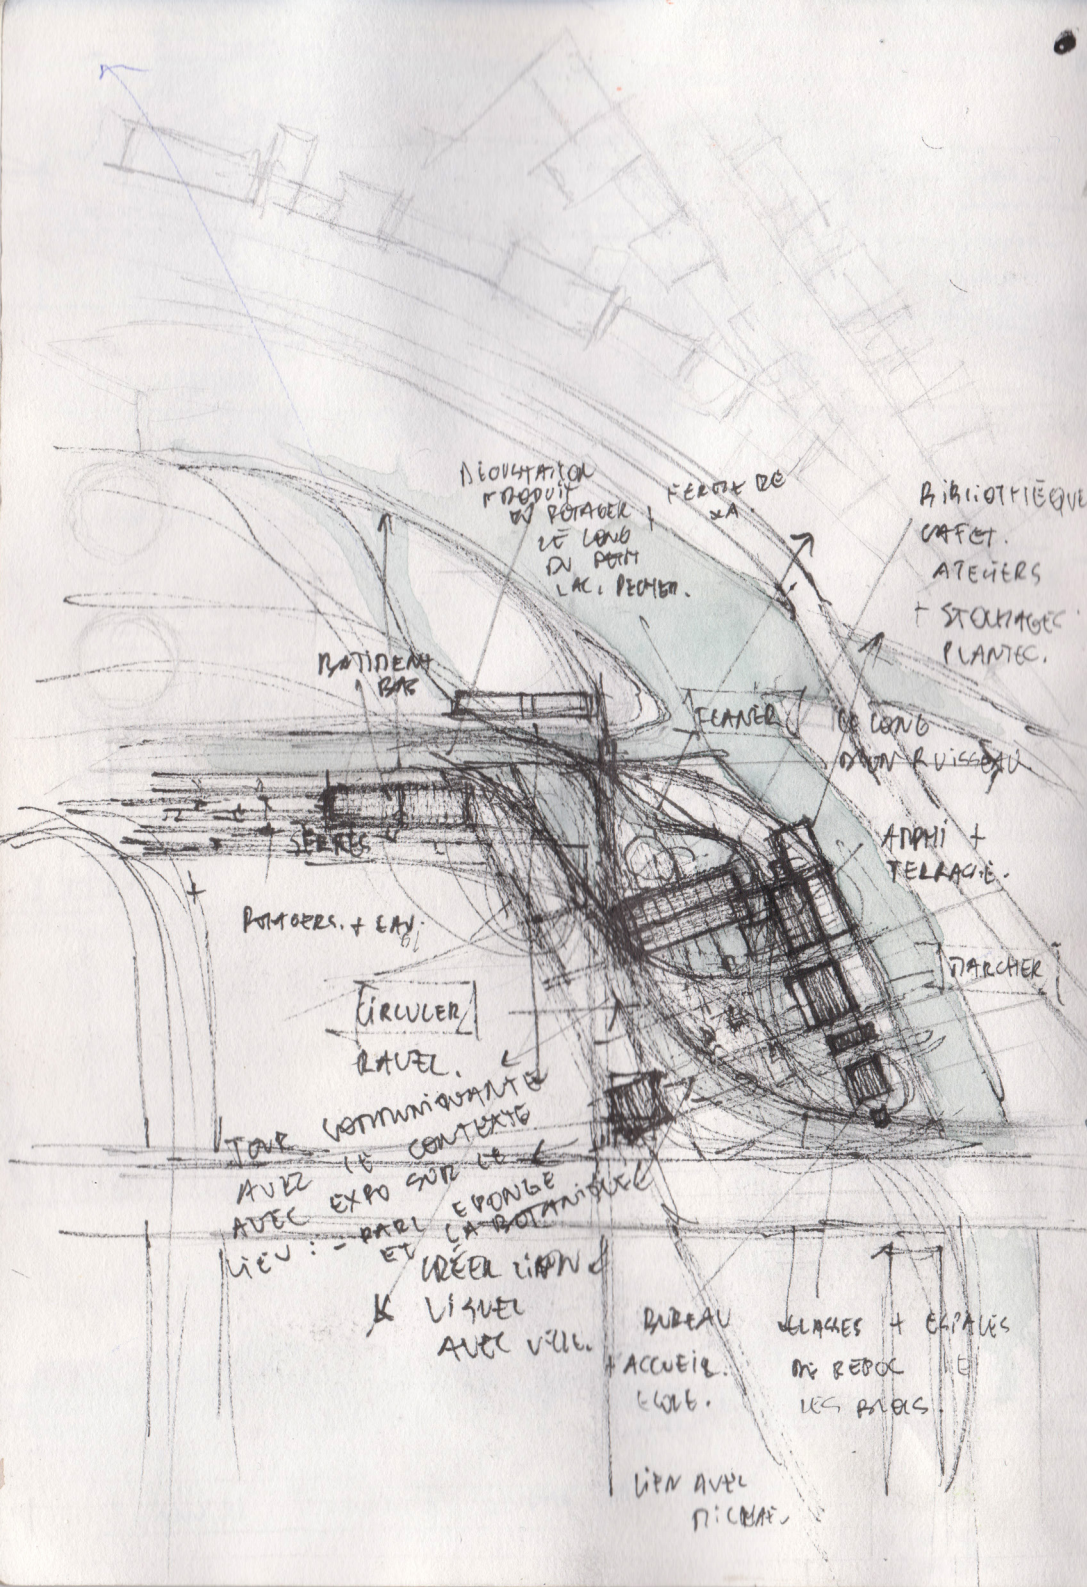 DÉGUSTATION
PRODUIT
DU POTAGER
LE LONG
DU PETIT
LAC.
FERME DE
BIBLIOTHÈQUE
CAFET.
ATELIERS
+ STOCKAGES
PLANTES.
BATIMENT
BAS
FLANER
LE LONG
D'UN RUISSEAU.
SERRES
AMPHI +
TERRASSE.
POTAGERS. + EAU
MARCHER
CIRCULER
RAVEL.
TOUR COMMUNIQUANTE
AVEC LE CONTEXTE
AVEC EXPO SUR LE
LIEU : - PARC EPONGE
ET LA BOTANIQUE
CRÉER LIEN
VISUEL
AVEC VILLE.
BUREAU
+ ACCUEIL.
ECOLE.
CLASSES + ESPACES
DE REPOS
LES BLOCS.
LIEN AVEC